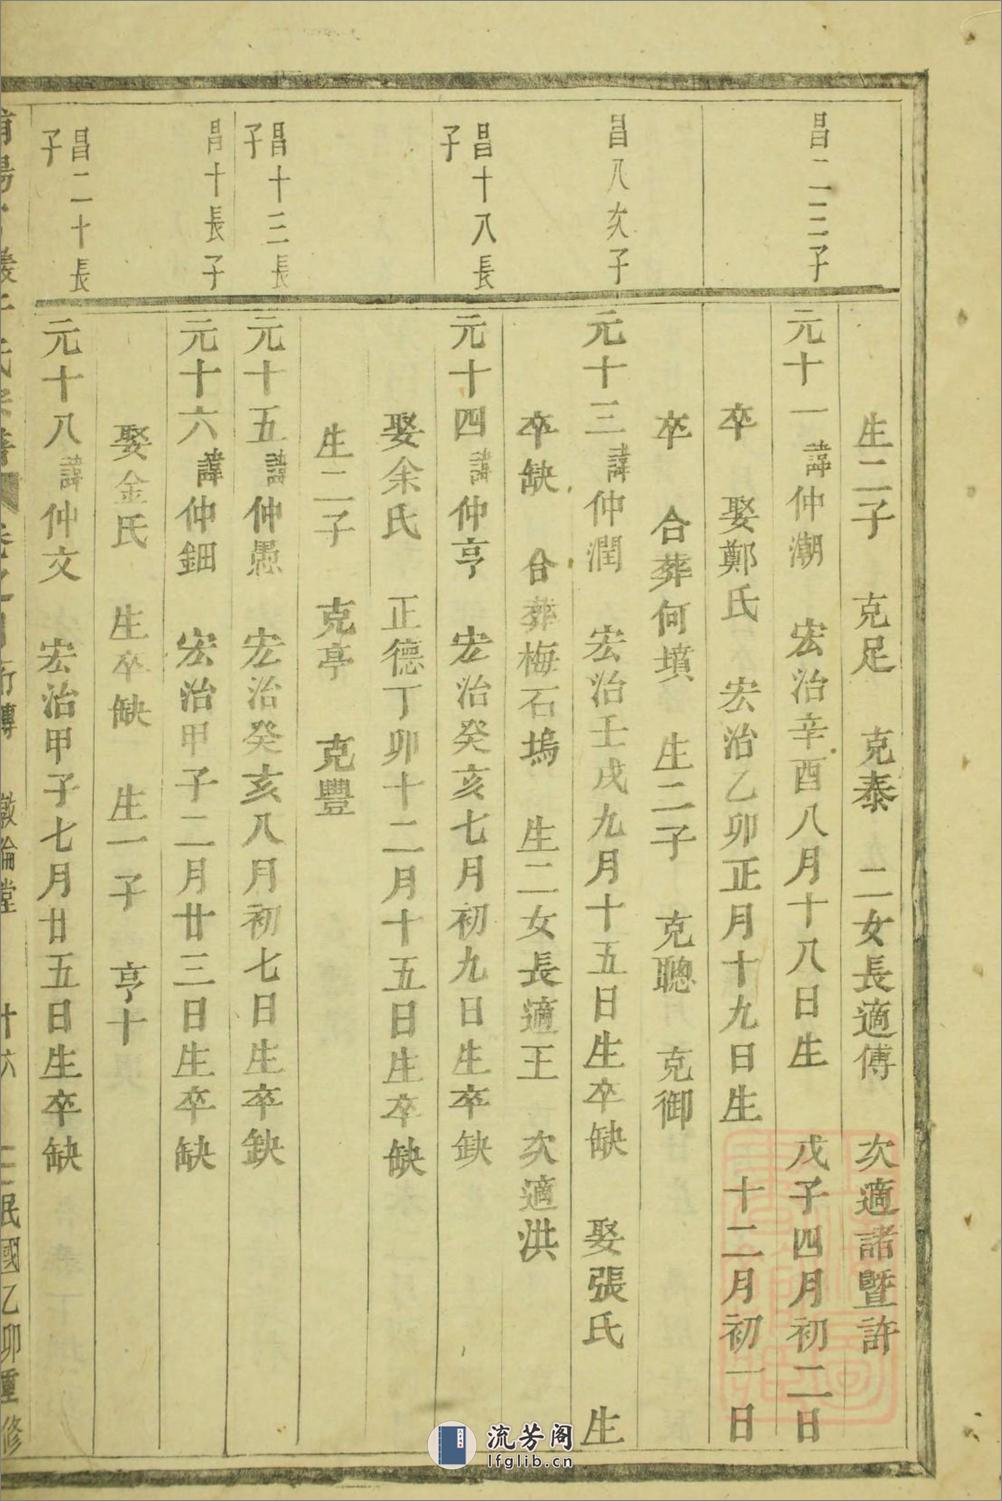 昌二二子
昌八次子
昌十八長
子
昌十三長
子
昌十長子
昌二十長
子
生二子 克足 克泰 二女長適傅 次適諸暨許
元十一諱仲潮 宏治辛酉八月十八日生 戊子四月初二日
卒 娶鄭氏 宏治乙卯正月十九日生 十二月初一日
卒 合葬何墳 生二子 克聰 克御
元十三諱仲潤 宏治壬戌九月十五日生卒缺 娶張氏 生
卒缺 合葬梅石塢 生二女長適王 次適洪
元十四諱仲亨 宏治癸亥七月初九日生卒缺
娶余氏 正德丁卯十二月十五日生卒缺
生二子 克亭 克豐
元十五諱仲愚 宏治癸亥八月初七日生卒缺
元十六諱仲鈿 宏治甲子二月廿三日生卒缺
娶金氏 生卒缺 生一子 亨十
元十八諱仲文 宏治甲子七月廿五日生卒缺
敦倫堂 十六 民國乙卯重修
流芳阁
lfglib.cn